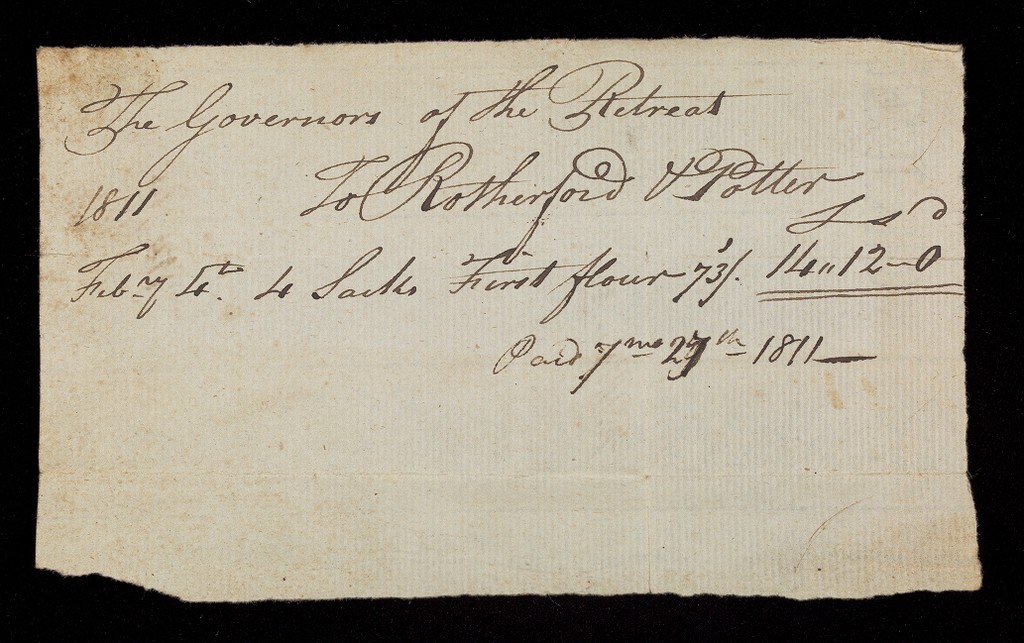 The Governors of the Retreat
1811 To Rotherford & Potter
£ s d
Feby 4th. 4 Sacks First flour 73/. 14" 12 - 0
Paid 7mo 27th - 1811